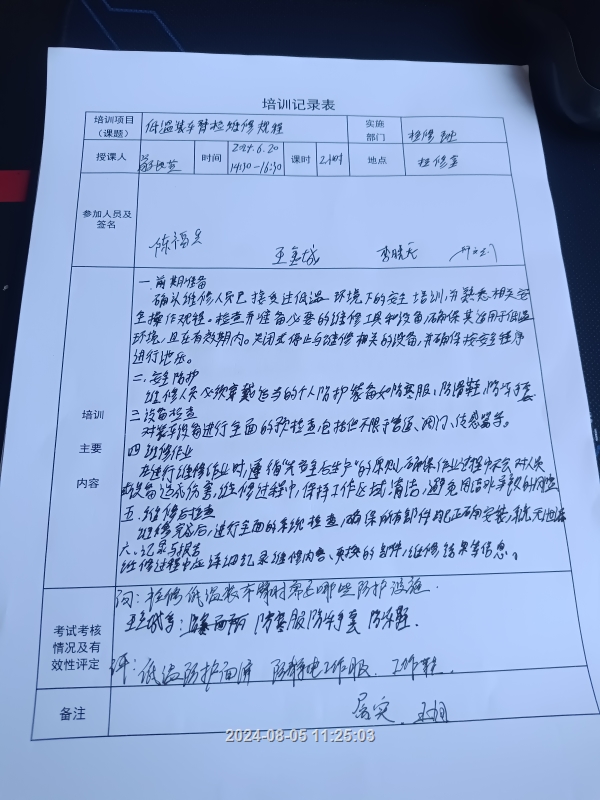 培训记录表
培训项目（课题） 低温装车臂检维修规程 实施部门 检修班
授课人 时间 2024.6.20 14:30-16:30 课时 2小时 地点 检修室
参加人员及签名
陈福 王金城 李晓天
培训主要内容
一.前期准备
确认维修人员已接受过低温环境下的安全培训,并熟悉相关安
全操作规程。检查并准备必要的维修工具和设备,确保其适用于低温
环境,且在有效期内。关闭或停止与维修相关的设备,并确保按安全程序
进行泄压。
二.安全防护
维修人员必须穿戴适当的个人防护装备如防寒服,防滑鞋,防冻手套
三设备检查
对装车设备进行全面的预检查,包括但不限于管道、阀门、传感器等。
四 维修作业
在进行维修作业时,遵循“先安全后生产”的原则,确保作业过程中不会对人员
或设备造成伤害,维修过程中,保持工作区域清洁,避免因
五.维修后检查
维修完成后,进行全面的系统检查,确保所有部件均已正确安装,系统无泄漏
六.记录与报告
维修过程中应详细记录维修内容、更换的部件,维修结果等信息。
考试考核情况及有效性评定
问:检修低温装车臂时需要哪些防护设施.
王金城答: 防寒服防冻手套 防冻鞋.
评:低温防护面屏 防静电工作服. 工作鞋.
备注
属实.
2024-08-05 11:25:03